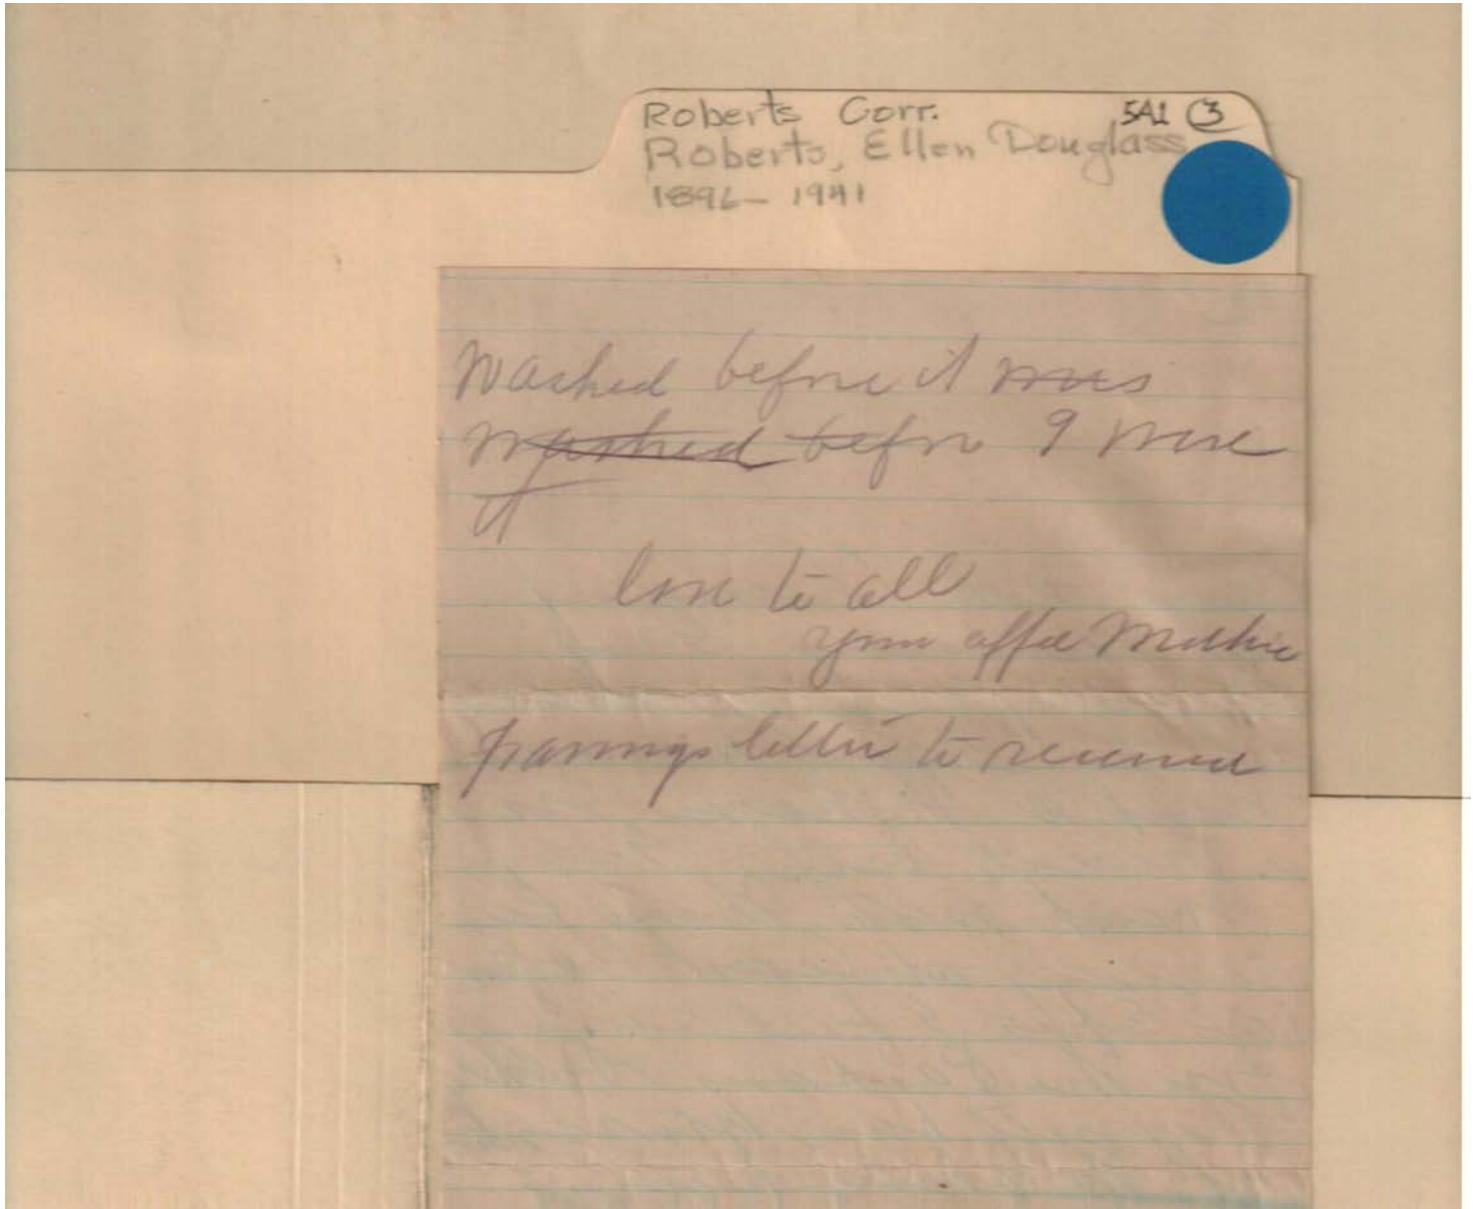 Roberts Corr. 5A1 3
Roberts, Ellen Douglass
1896-1941
washed before it was
washed before I wore
it
love to all
your affec Mother
letter to received